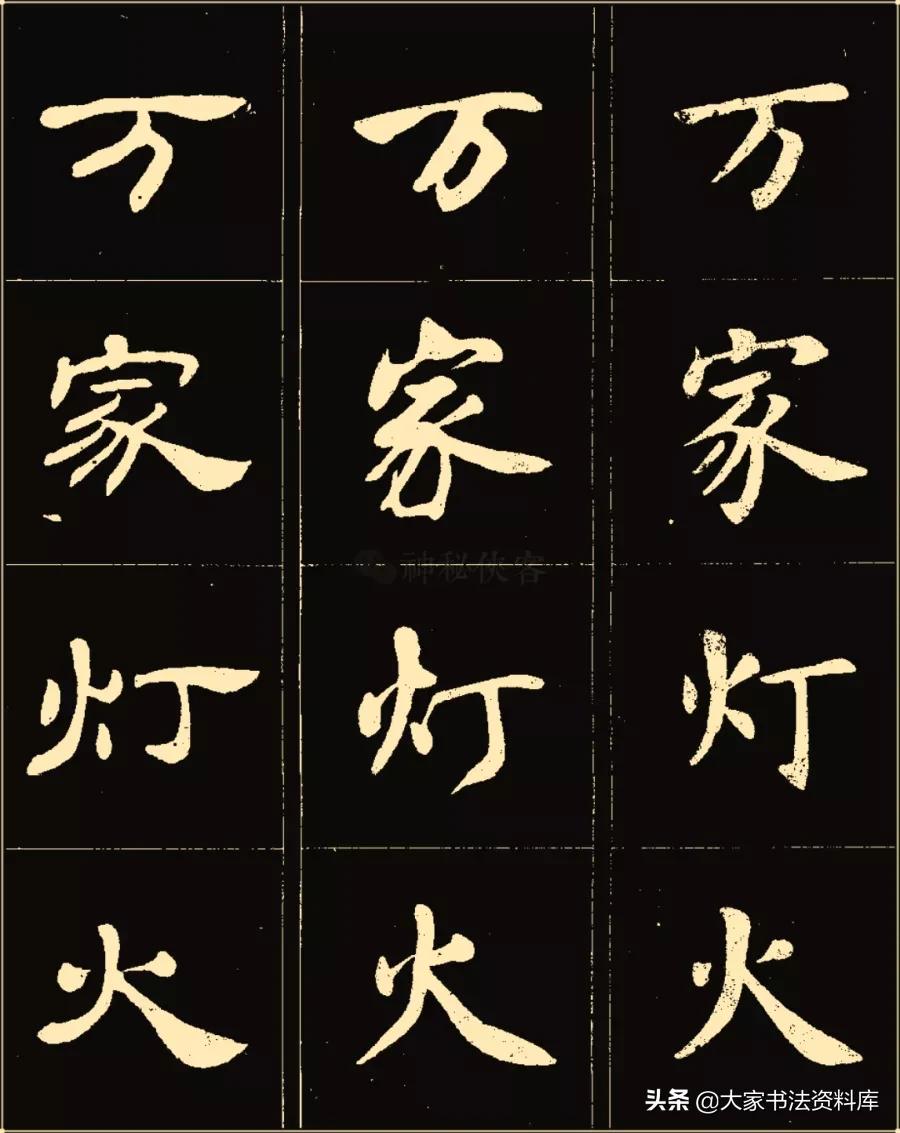 万 万 万
家 家 家
灯 灯 灯
火 火 火
神秘侠客
头条 @大家书法资料库